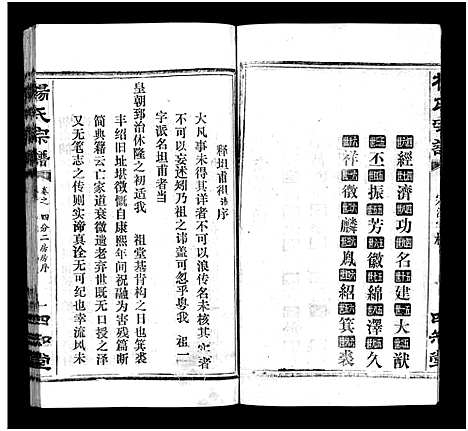 經濟功名建大猷
丕振芳徽綿澤久
祥徵麟鳳紹箕裘
楊氏宗譜
卷之一
四分二房房序
一
四知堂
釋坦甫祖諱序
大凡事未得其詳者不可以浪傳名未核其實者
不可以妄述矧乃祖之諱盖可忽乎粤我 祖二
字派名坦甫者當
皇朝郅治休隆之初適我 祖堂基肯构之日也箕裘
丰绍旧址堪徵慨自康熙年间祝融为害残篇断
简典籍云亡家道衰微遗老弃世既无口授之泽
又无笔志之传则实谛真诠无可纪也幸流风未